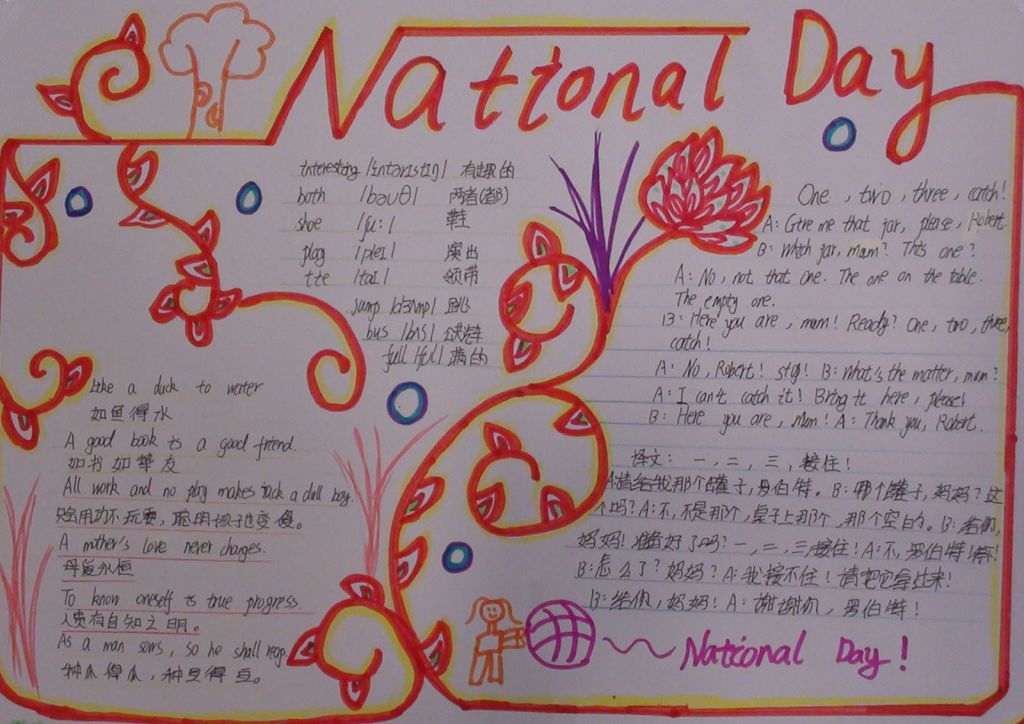 National Day
interesting /intəristiŋ/ 有趣的
both /bəuθ/ 两者(都)
shoe /ʃu:/ 鞋
play /plei/ 演出
tie /tai/ 领带
jump /dʒʌmp/ 跳
bus /bʌs/ 公共汽车
full /ful/ 满的
Like a duck to water
如鱼得水
A good book is a good friend.
如书如挚友
All work and no play makes jack a dull boy.
只会用功不玩耍,聪明孩子也变傻。
A mother's love never changes.
母爱永恒
To know oneself is true progress.
人贵有自知之明。
As a man sows, so he shall reap.
种瓜得瓜,种豆得豆。
One, two, three, catch!
A: Give me that jar, please, Robert.
B: Which jar, mam? This one?
A: No, not that one. The one on the table.
The empty one.
B: Here you are, mum! Ready? One, two, three,
catch!
A: No, Robert! stop! B: What's the matter, mum?
A: I can't catch it! Bring it here, please!
B: Here you are, Mum! A: Thank you, Robert.
译文: 一,二,三,接住!
A:请给我那个罐子,罗伯特。B: 哪个罐子,妈妈?这
个吗? A:不,不是那个,桌子上那个,那个空的。B:给你,
妈妈!准备好了吗?一,二,三,接住! A:不,罗伯特!
B:怎么了?妈妈? A:我接不住!请把它拿过来!
B:给你,妈妈! A:谢谢你,罗伯特!
National Day!